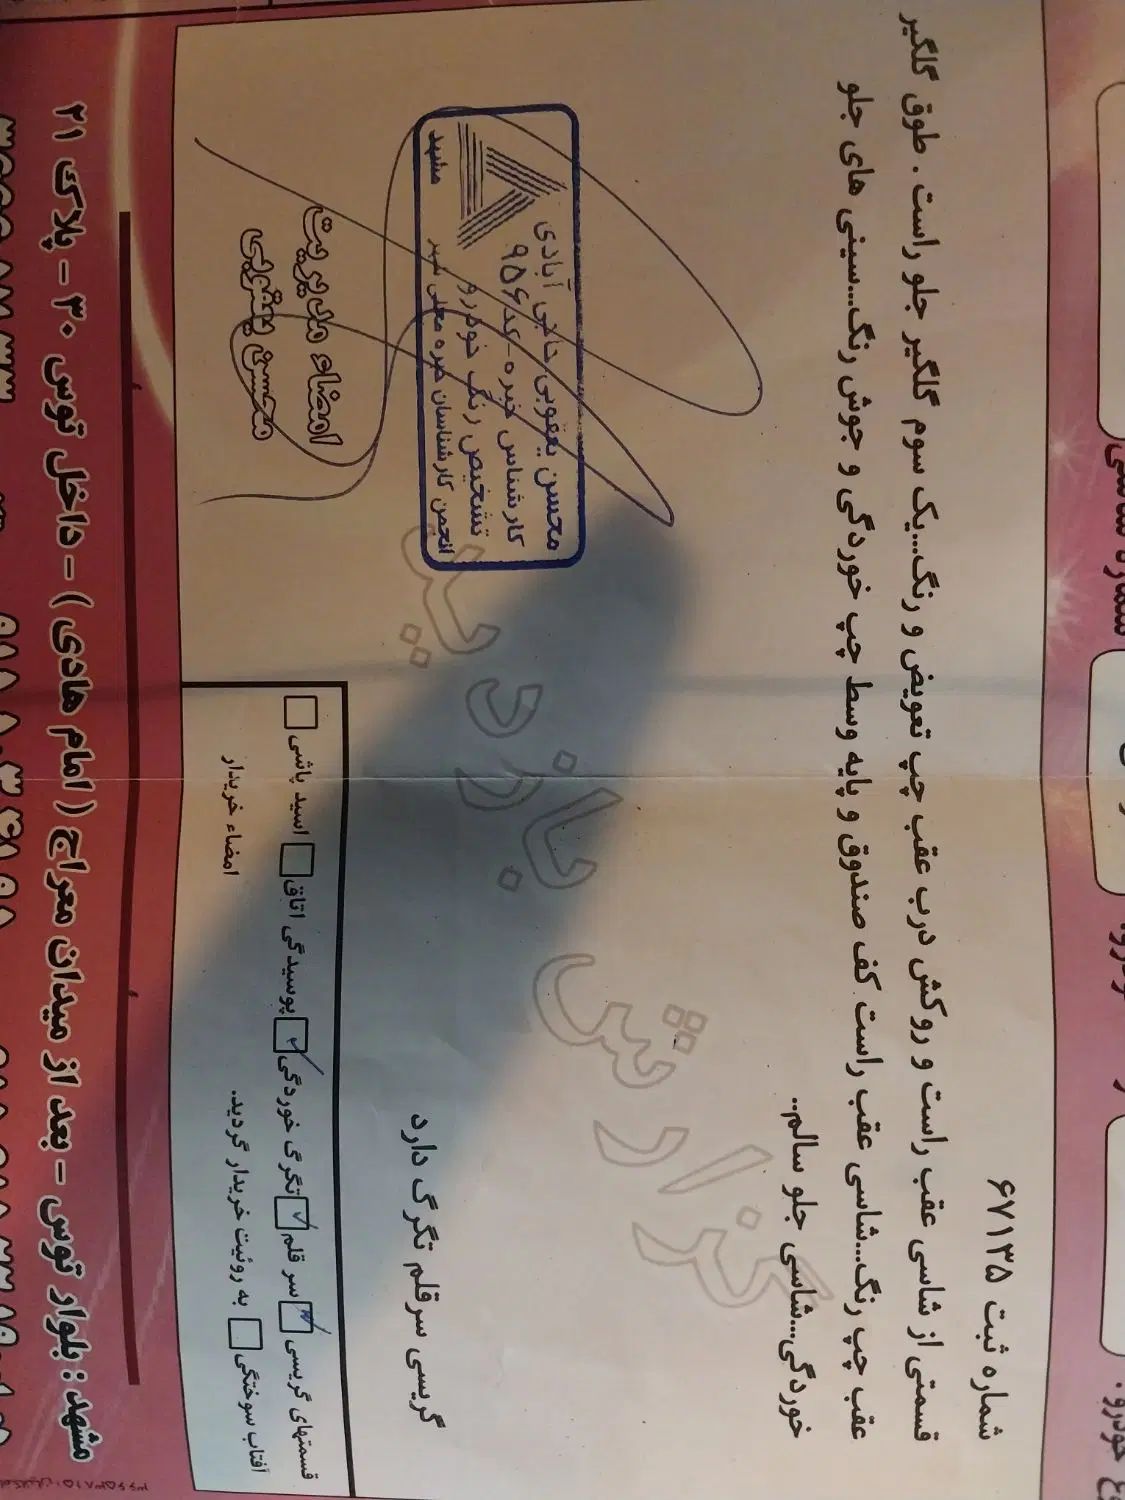 شماره ثبت ۶۷۱۳۵
قسمتی از شاسی عقب راست و روکش درب عقب چپ تعویض و رنگ...یک سوم گلگیر جلو راست . طوق گلگیر
عقب چپ رنگ...شاسی عقب راست کف صندوق و پایه وسط چپ خوردگی و جوش رنگ...سینی های جلو
خوردگی...شاسی جلو سالم..
گزارش بازدید
گریسی سرقلم تگرگ دارد
محسن یعقوبی حاجی آبادی
کارشناس خبره-کد ۹۵۶
تشخیص رنگ خودرو
انجمن کارشناسان خبره محلی شهر
مشهد
امضاء مدیریت
محسن یعقوبی
قسمتهای گریسی سر قلم تگرگ خوردگی پوسیدگی اتاق اسید پاشی
آفتاب سوختگی به روئیت خریدار گردید.
امضاء خریدار
مشهد : بلوار توس - بعد از میدان معراج ( امام هادی ) - داخل توس ۳۰ - پلاک ۲۱